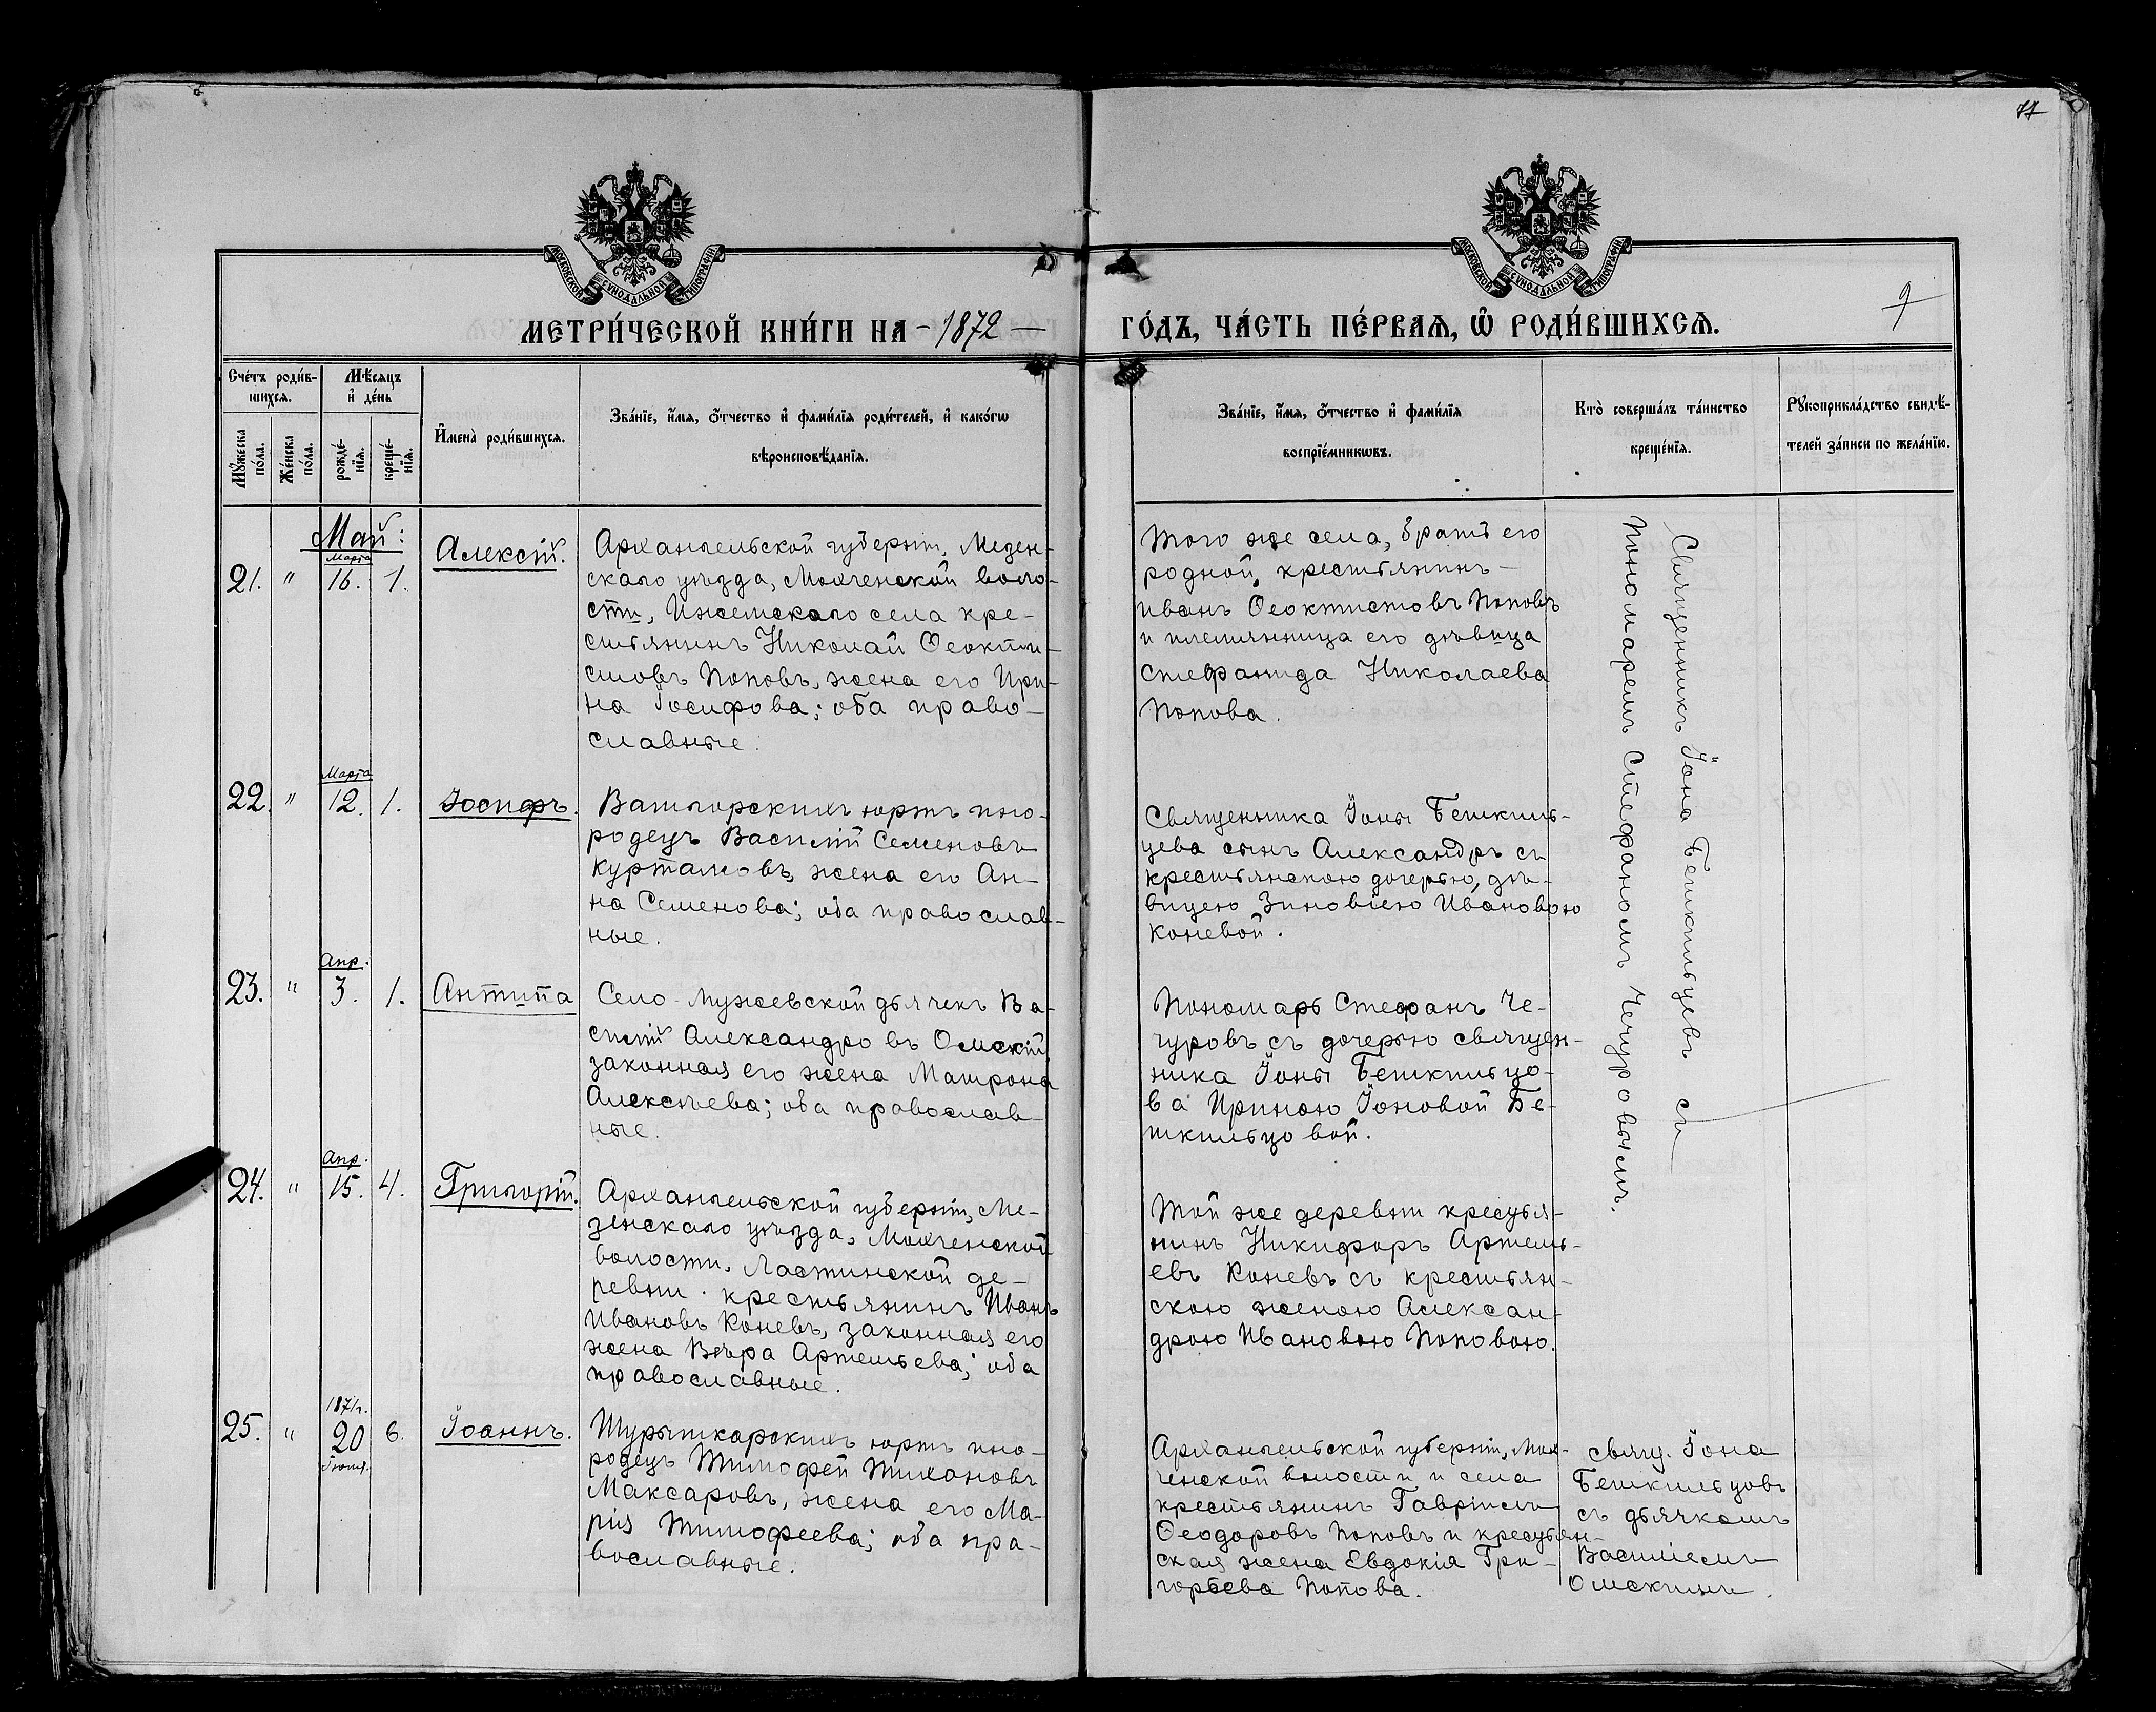 77
МОСКОВСКОЙ СѴНОДАЛЬНОЙ ТИПОГРАФІИ
МОСКОВСКОЙ СѴНОДАЛЬНОЙ ТИПОГРАФІИ
МЕТРИ́ЧЕСКОЙ КНИ́ГИ НА -1872-
ГО́ДЪ, ЧА́СТЬ ПЕ́РВАѦ, Ѽ РОДИ́ВШИХСѦ.
9
Сче́тъ роди́в-
шихсѧ.
Мѣ́сѧцъ
и҆ де́нь
Мꙋ́жеска
по́ла.
Же́нска
по́ла.
рожде́-
нїѧ.
креще́-
нїѧ.
И҆мена̀ роди́вшихсѧ.
Зва́нїе, и҆́мѧ, ѻ҆́тчество и҆ фами́лїѧ роди́телей, и҆ како́гѡ
вѣроисповѣ́данїѧ.
Зва́нїе, и҆́мѧ, ѻ҆́тчество и҆ фами́лїѧ
воспрїе́мникѡвъ.
Кто̀ соверша́лъ та́инство
креще́нїѧ.
Рꙋкоприкла́дство свидѣ́-
телей за́писи по жела́нїю.
Май:
Марта
21. " 16. 1.
Алексій.
Архангельской губерніи, Мезен-
скаго уѣзда, Мохченской воло-
сти, Ижемскаго села кре-
стьянинъ Николай Ѳеокти-
стовъ Поповъ, жена его Ири-
на Іосифова; оба право-
славные.
Того же села, братъ его
родной, крестьянинъ-
Иванъ Ѳеоктистовъ Поповъ
и племянница его дѣвица
Стефанида Николаева
Попова.
Священникъ Іона Бешкильцевъ съ
пономаремъ Стефаномъ Чечуровымъ.
Марта
22. " 12. 1.
Іосифъ.
Вативорскихъ юртъ ино-
родецъ Василій Семеновъ
Куртамовъ, жена его Ан-
на Семенова; оба православ-
ные.
Священника Іоны Бешкиль-
цева сынъ Александръ съ
крестьянскою дочерью, дѣ-
вицею Зиновіею Ивановою
Коневой.
Апр.
23. " 3. 1.
Антипа
Село-Мужевской дьячекъ Ва-
силій Александровъ Омскій,
законная его жена Матрона
Алексѣева; оба православ-
ные.
Пономарь Стефанъ Че-
чуровъ съ дочерью священ-
ника Іоны Бешкильцо-
ва Ириною Іоновой Бе-
шкильцовой.
Апр.
24. " 15. 4.
Григорій.
Архангельской губерніи, Ме-
зенскаго уѣзда, Мохченской
волости, Ластинской де-
ревни крестьянинъ Иванъ
Ивановъ Коневъ, законная его
жена Вѣра Артемьева; оба
православные.
Той же деревни крестья-
нинъ Никифоръ Артемь-
евъ Коневъ съ крестьян-
скою женою Алексан-
дрою Ивановою Поповою.
1871г.
25. " 20 6.
Іюня.
Іоаннъ.
Шурышкарскихъ юртъ ино-
родецъ Тимофей Тихановъ
Максаровъ, жена его Ма-
рія Тимофеева; оба пра-
вославные.
Архангельской губерніи, Мох-
ченской волости и села
крестьянинъ Гавріилъ
Ѳеодоровъ Поповъ и крестьян-
ская жена Евдокія Гри-
горьева Попова.
свящ. Іона
Бешкильцовъ
съ дьячкомъ
Василіемъ
Омскимъ.